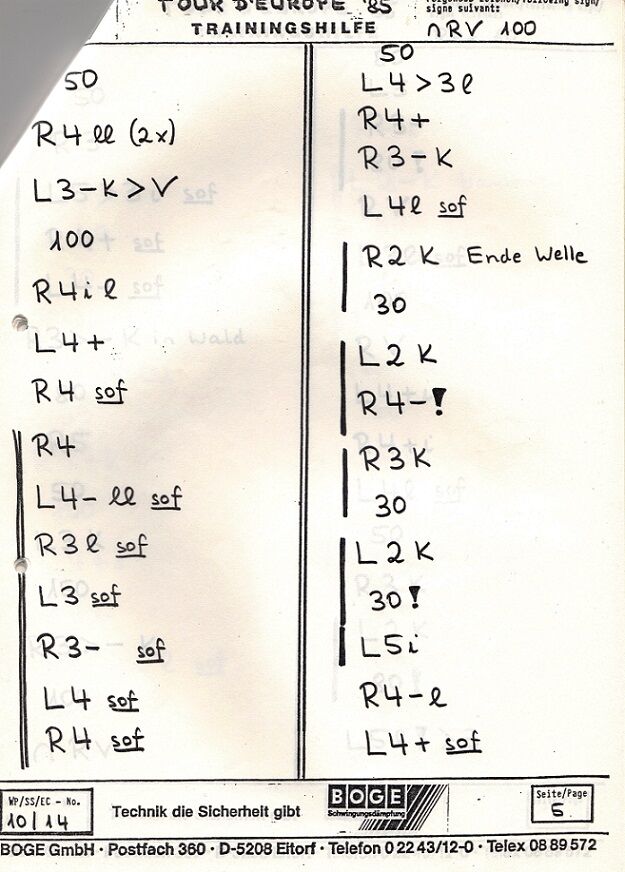 TOUR D'EUROPE '85
TRAININGSHILFE
signe suivant:
nRV 100
50
R4 ll (2x)
L3-K>V
100
R4i l
L4+
R4 sof
R4
L4- ll sof
R3 l sof
L3 sof
R3- sof
L4 sof
R4 sof
50
L4>3l
R4+
R3-K
L4l sof
R2 K Ende Welle
30
L2 K
R4-!
R3K
30
L2 K
30!
L5i
R4-l
L4+ sof
WP/SS/EC - No.
10/14
Technik die Sicherheit gibt
BOGE
Schwingungsdämpfung
Seite/Page
5
BOGE GmbH · Postfach 360 · D-5208 Eitorf · Telefon 0 22 43/12-0 · Telex 08 89 572